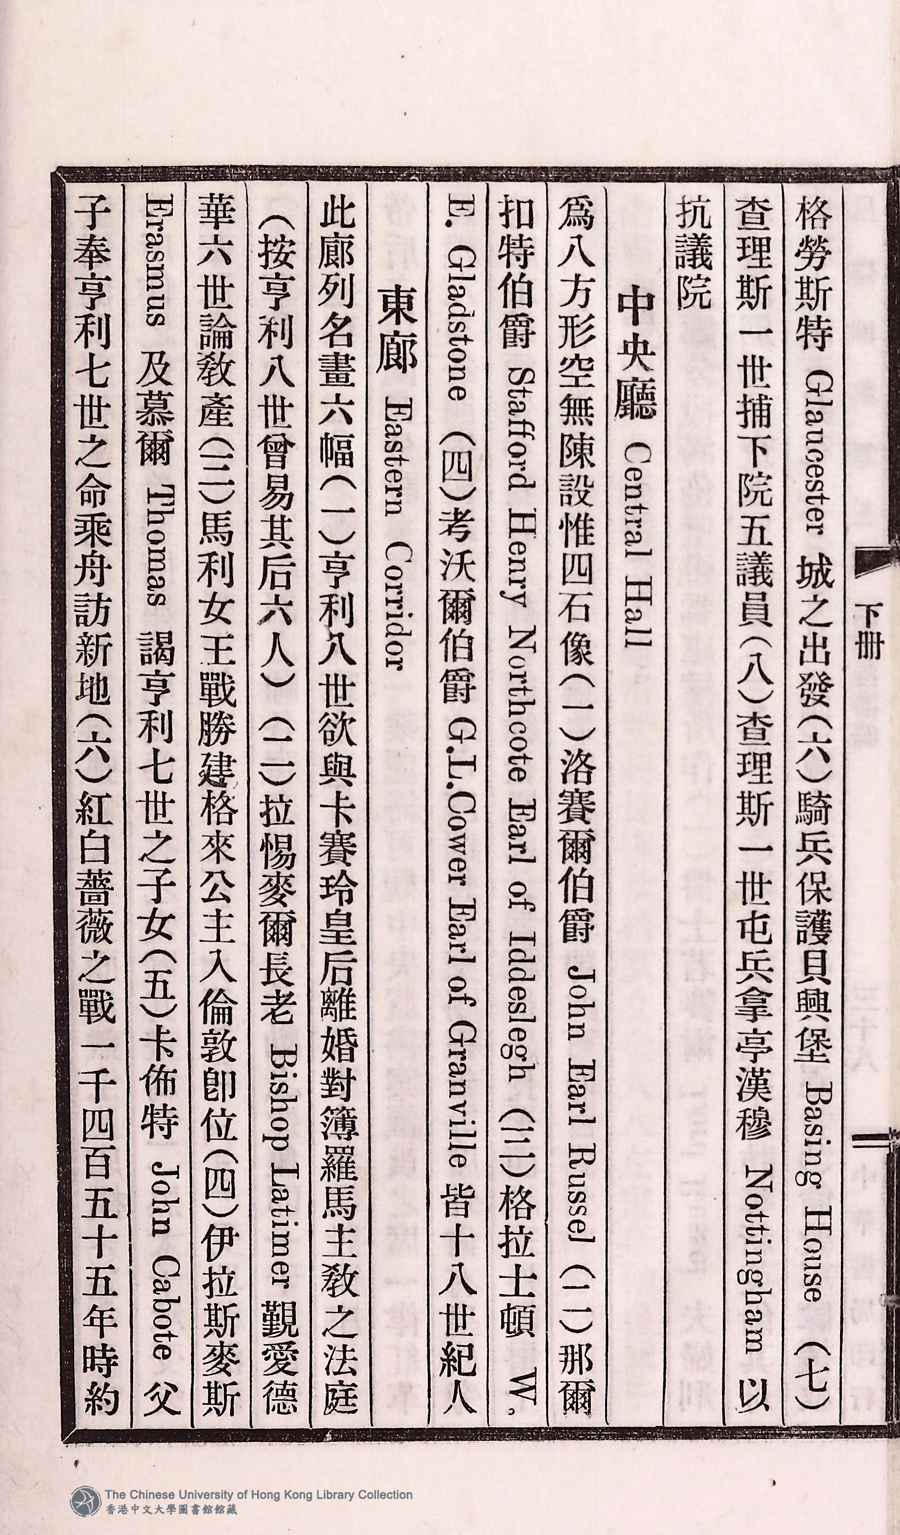 格勞斯特 Glaucester 城之出發(六)騎兵保護貝興堡 Basing House (七)
查理斯一世捕下院五議員(八)查理斯一世屯兵拿亭漢穆 Nottingham 以
抗議院
中央廳 Central Hall
爲八方形空無陳設惟四石像(一)洛賽爾伯爵 John Earl Russel (二)那爾
扣特伯爵 Stafford Henry Northcote Earl of Iddeslegh (三)格拉士頓 W.
E. Gladstone (四)考沃爾伯爵 G.L.Cower Earl of Granville 皆十八世紀人
東廊 Eastern Corridor
此廊列名畫六幅(一)亨利八世欲與卡賽玲皇后離婚對簿羅馬主敎之法庭
(按亨利八世曾易其后六人)(二)拉惕麥爾長老 Bishop Latimer 覲愛德
華六世論敎產(三)馬利女王戰勝建格來公主入倫敦卽位(四)伊拉斯麥斯
Erasmus 及慕爾 Thomas 謁亨利七世之子女(五)卡佈特 John Cabote 父
子奉亨利七世之命乘舟訪新地(六)紅白薔薇之戰一千四百五十五年時約
下册
The Chinese University of Hong Kong Library Collection
香港中文大學圖書館館藏